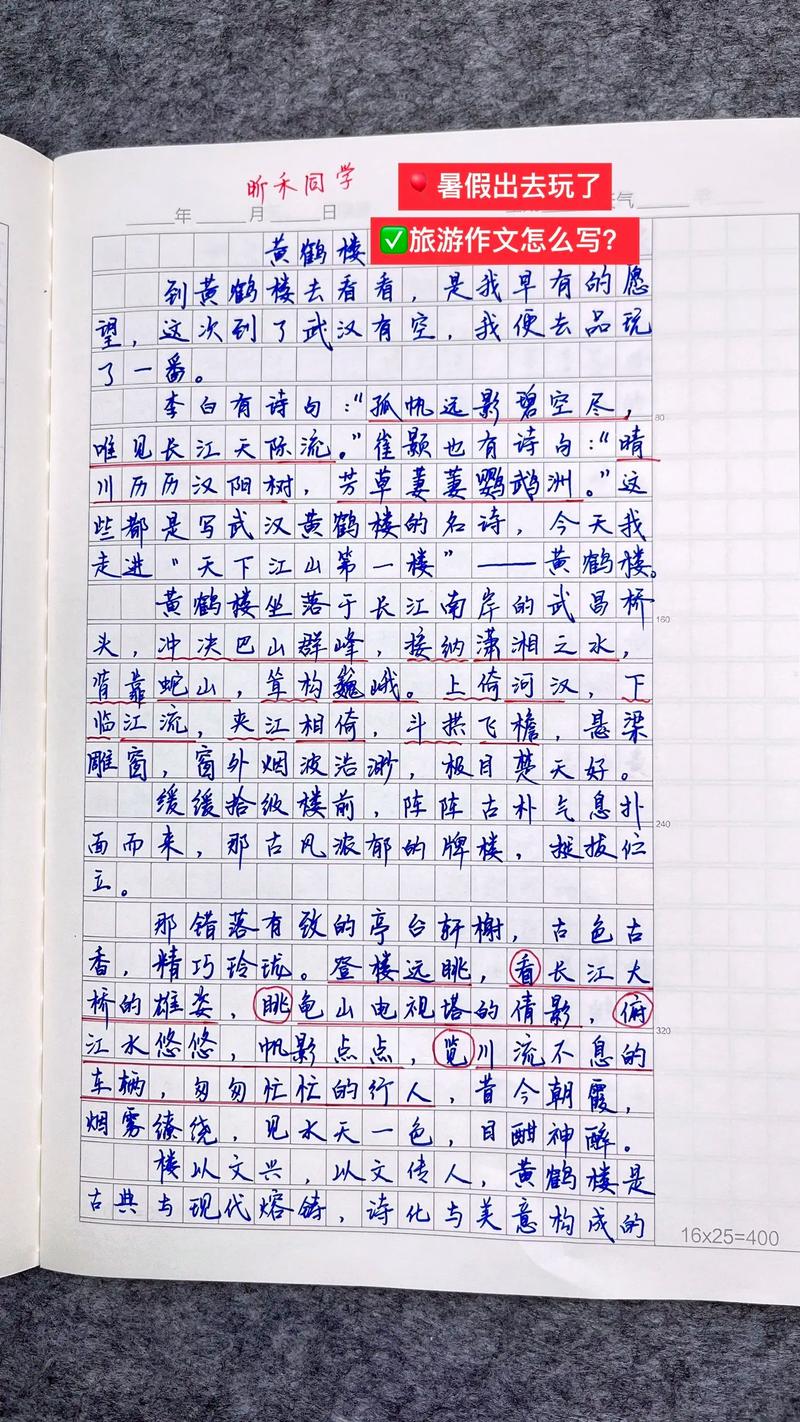 昕禾同学
暑假出去玩了
年 月 日
气
旅游作文怎么写?
黄鹤楼
到黄鹤楼去看看,是我早有的愿
望,这次到了武汉有空,我便去品玩
了一番。
李白有诗句:“孤帆远影碧空尽,
80
唯见长江天际流。”崔颢也有诗句:“晴
川历历汉阳树,芳草萋萋鹦鹉洲。”这
些都是写武汉黄鹤楼的名诗,今天我
走进“天下江山第一楼”——黄鹤楼。
黄鹤楼坐落于长江南岸的武昌桥
160
头,冲决巴山群峰,接纳潇湘之水,
背靠蛇山,耸构巍峨。上倚河汉,下
临江流,夹江相倚,斗拱飞檐,悬梁
雕窗,窗外烟波浩渺,极目楚天好。
缓缓拾级楼前,阵阵古朴气息扑
240
面而来,那古风浓郁的牌楼,挺拔位
立。
那错落有致的亭台轩榭,古色古
香,精巧玲珑。登楼远眺,看长江大
桥的雄姿,眺龟山电视塔的倩影,俯
320
江水悠悠,帆影点点,览川流不息的
车辆,匆匆忙忙的行人,昔今朝霞,
烟雾缭绕,见水天一色,目酣神醉。
楼以文兴,以文传人,黄鹤楼是
古典与现代熔铸,诗化与美意构成的
16x25=400